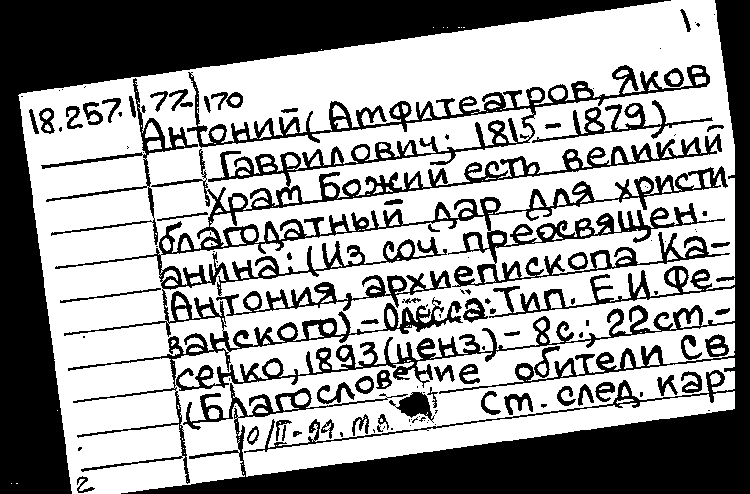 1.
18.257.1.77-170
Антоний (Амфитеатров, Яков
Гаврилович; 1815-1879)
Храм Божий есть великий
благодатный дар для христи-
анина: (Из соч. преосвящен.
Антония, архиепископа Ка-
занского).-Одесса: Тип. Е.И. Фе-
сенко, 1893 (ценз.).- 8с.; 22см.-
(Благословение обители Св
См. след. кар
10/II-94.
2